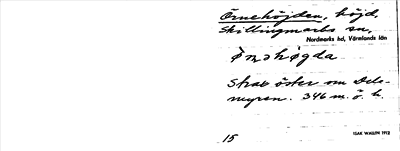 Örnehöjden, höjd,
Skillingmarks sn,
Nordmarks hd, Värmlands län
Strax öster om Dels-
myren. 346 m. ö. h.
15
ISAK WALLIN 1912